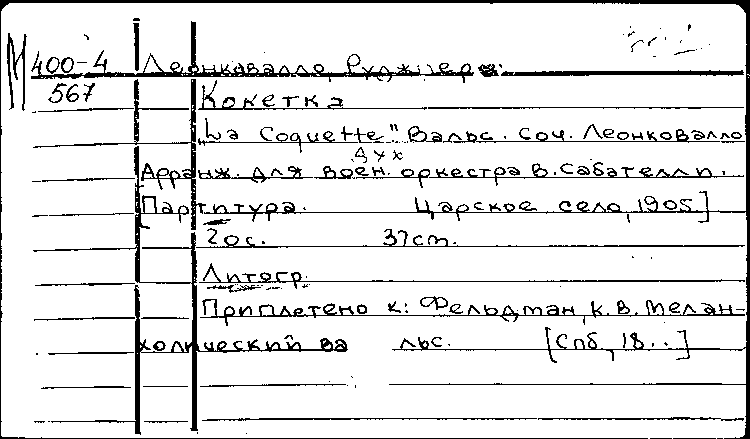 М 400-4 Леонкавалло, Руджиеро.
567 Кокетка
„La Coquette" Вальс. Соч. Леонковалло
дух
Арранж. для воен. оркестра В. Сабателли.
[Партитура. Царское село, 1905.]
20с. 37cm.
Литогр.
Приплетено к: Фельдман, К. В. Мелан-
холический ва льс. [Спб, 18..]